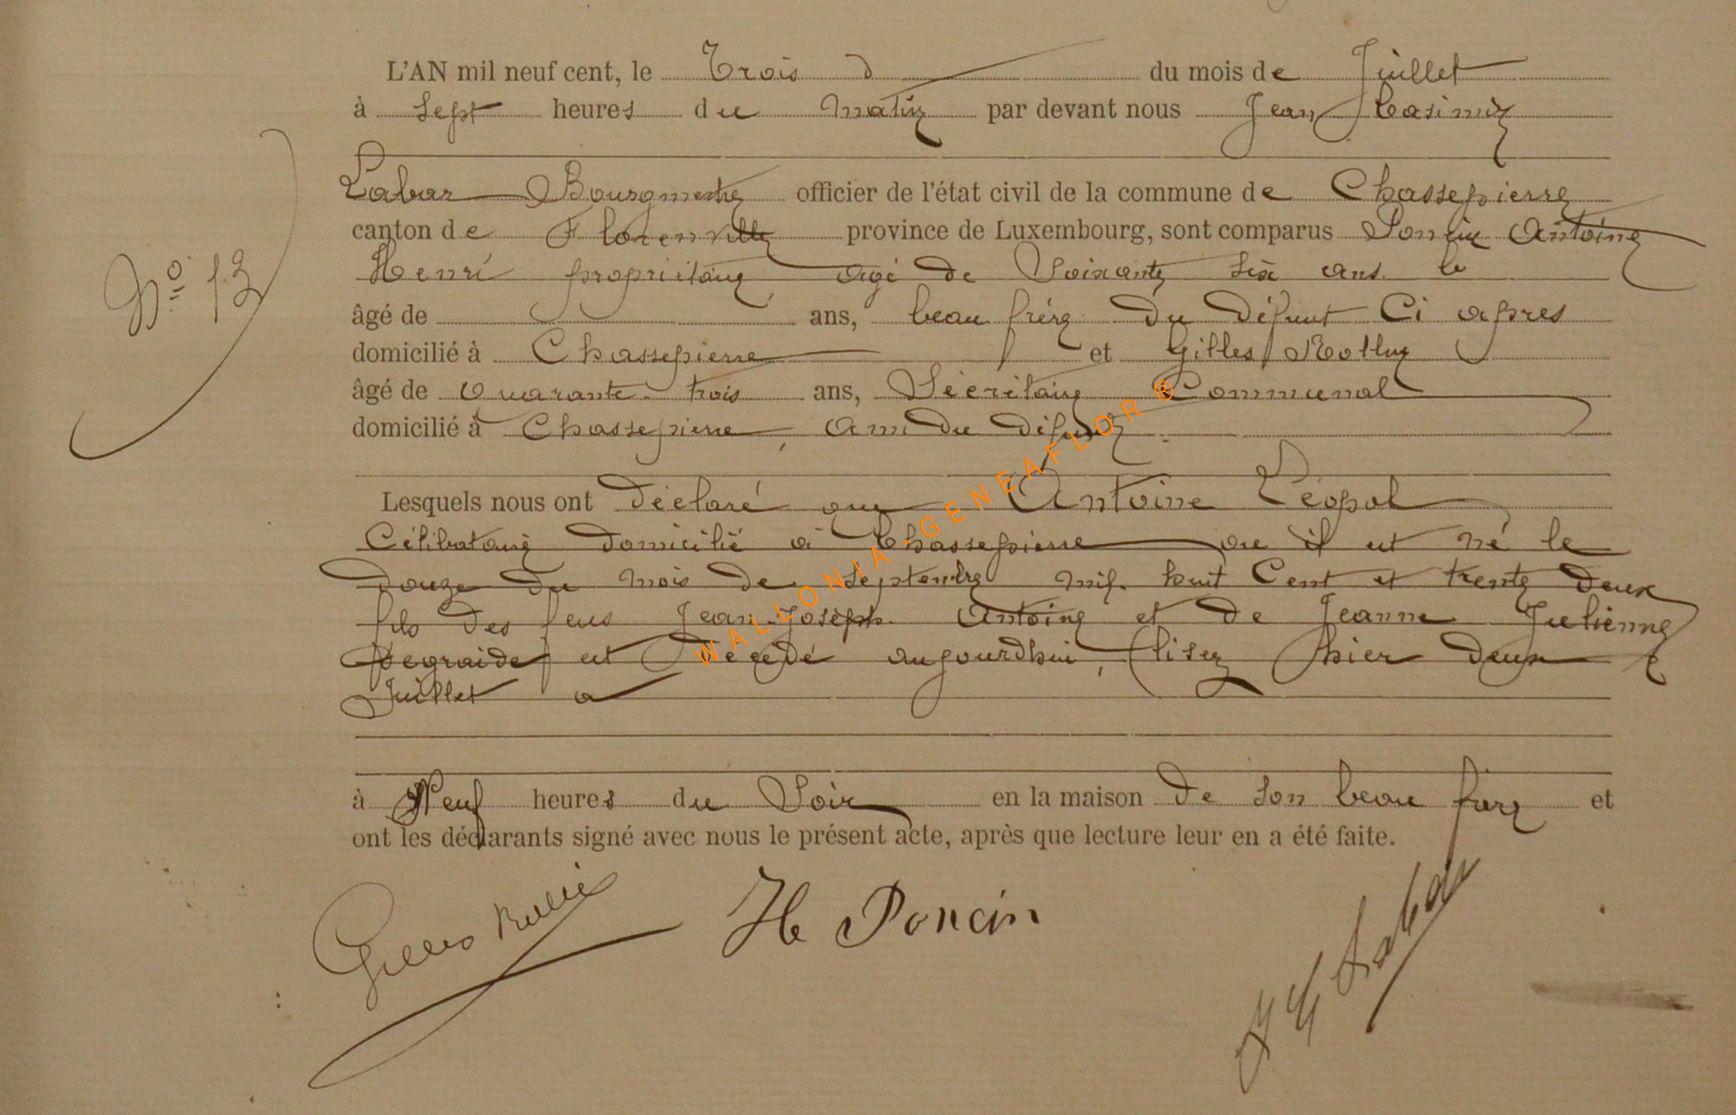 L'AN mil neuf cent, le Trois d du mois de Juillet
à Sept heures du Matin par devant nous Jean Casimir
Labar Bourgmestre officier de l'état civil de la commune de Chassepierre
canton de Florenville province de Luxembourg, sont comparus Poncin Antoine
N° 13
Henri propriétaire, agé de Soixante Six ans
âgé de ans, beau frère du défunt Ci après
domicilié à Chassepierre et Gilles
âgé de Quarante trois ans, Sécrétaire Communal
domicilié à Chassepierre, Ami du défunt
Lesquels nous ont déclaré que Antoine Léopol
Célibataire domicilié à Chassepierre ou il est né le
douze du mois de Septembre mil huit Cent et trente deux
fils des feus Jean Joseph Antoine et de Jeanne Julienne
est Décédé aujourdhui, (lisez hier deux
Juillet a
à Neuf heures du Soir en la maison de son beau frère et
ont les déclarants signé avec nous le présent acte, après que lecture leur en a été faite.
Gilles H Poncin Labar
WALLONIA-GENEAFLOR ®